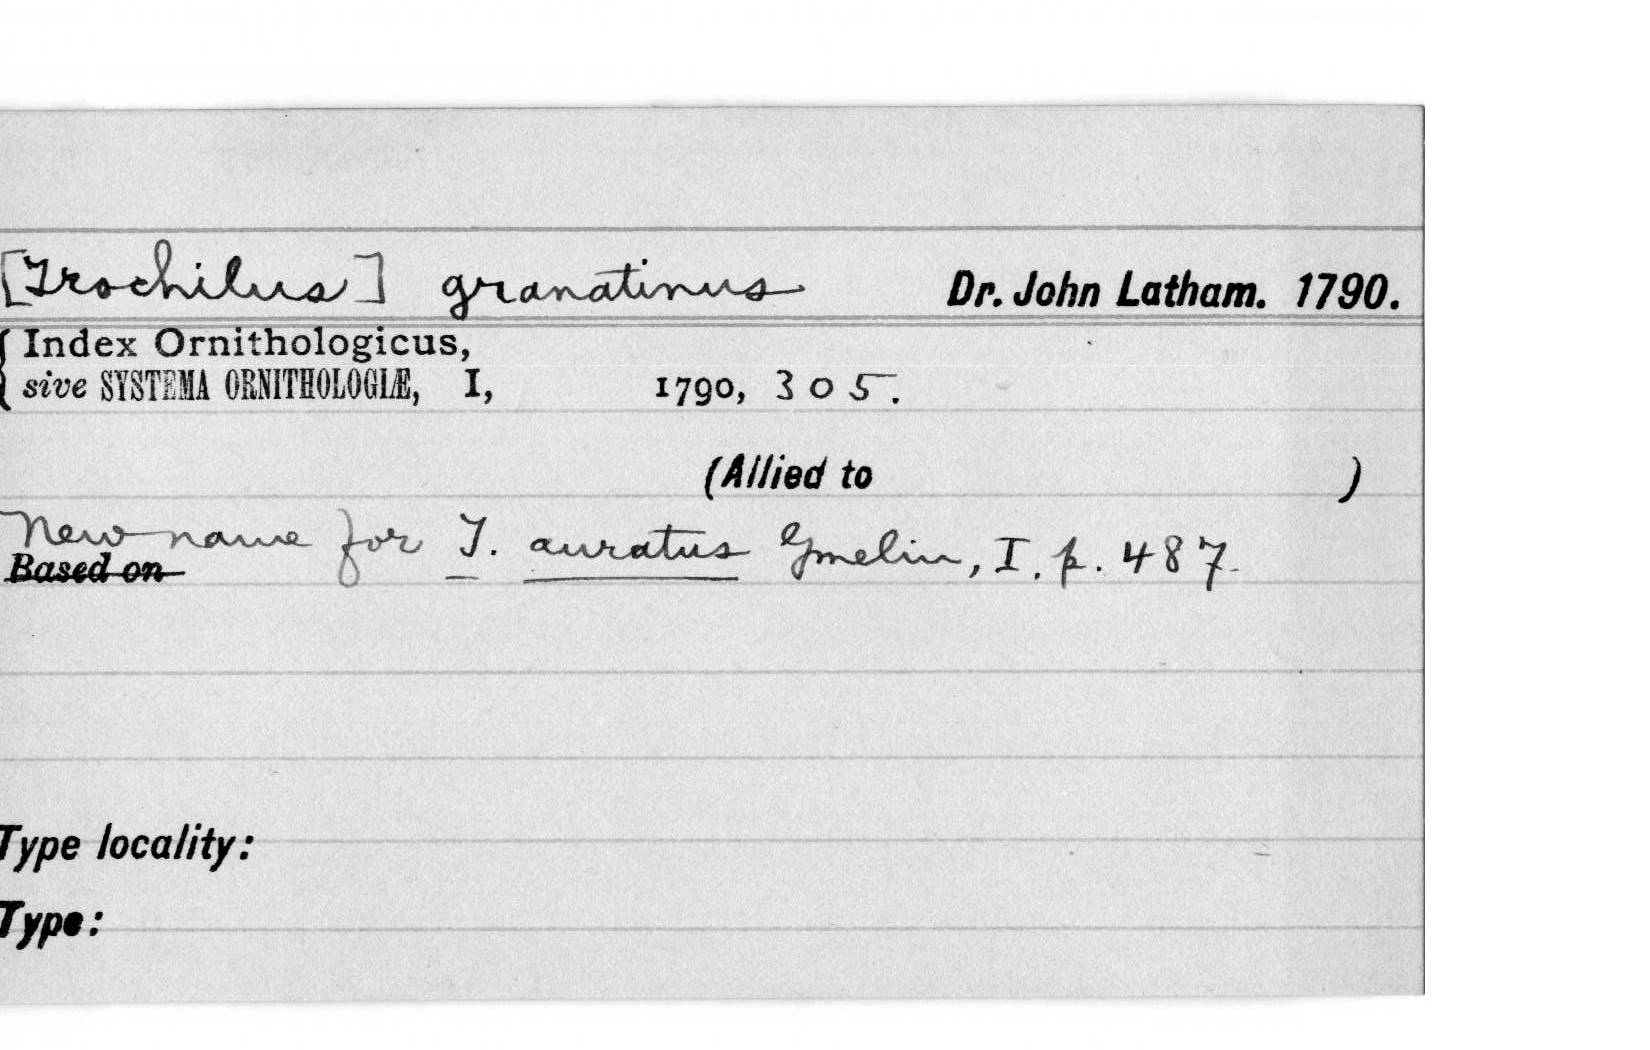 [Trochilus] granatinus Dr. John Latham. 1790.
Index Ornithologicus,
sive SYSTEMA ORNITHOLOGIÆ, I, 1790, 305.
(Allied to )
New name for T. auratus Gmelin, I. p. 487.
Based on
Type locality:
Type: